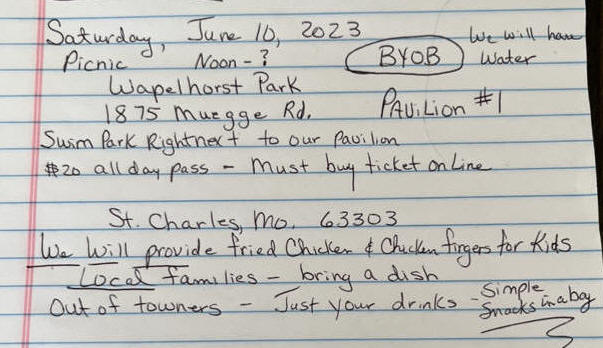 Saturday, June 10, 2023
Picnic Noon - ? BYOB We will have Water
Wapelhorst Park
1875 Muegge Rd. PAViLion #1
Swim Park Right next to our Pavilion
$20 all day pass - Must buy ticket on Line
St. Charles, Mo. 63303
We Will provide fried Chicken & Chicken fingers for Kids
Local families - bring a dish
Out of towners - Just your drinks - Simple Snacks in a bag